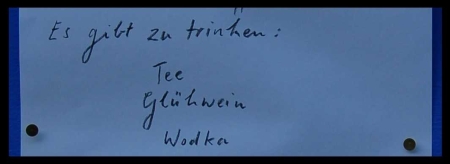 Es gibt zu trinken:
Tee
Glühwein
Wodka